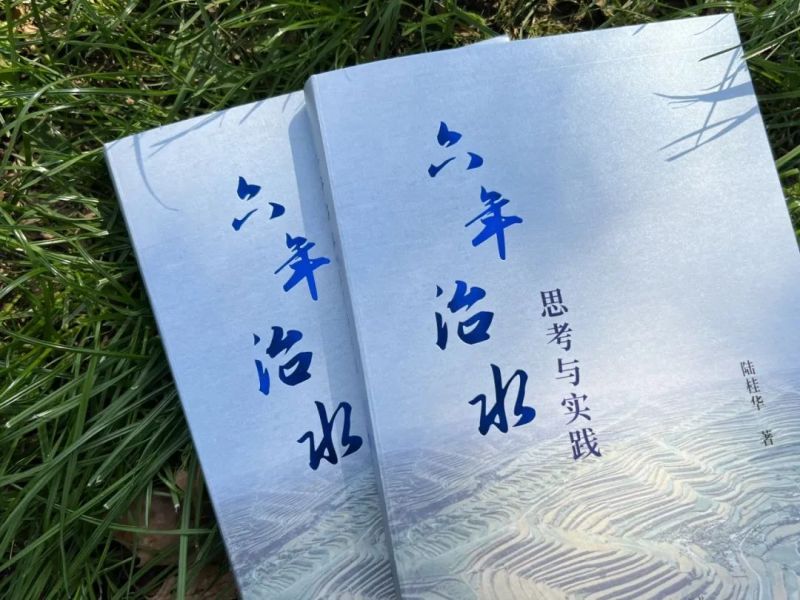 六年治水
六年治水
思考与实践
陆桂华 著